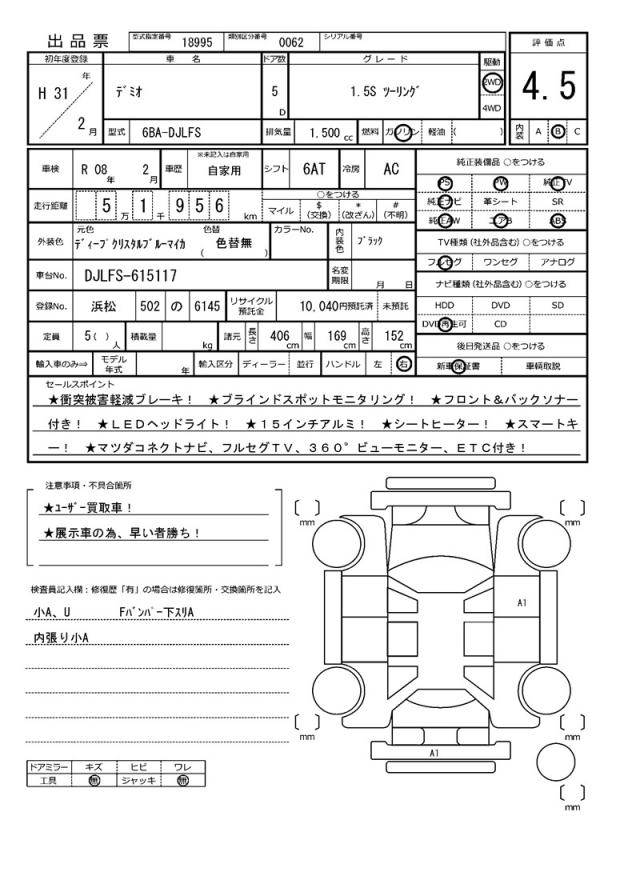 出品票 型式指定番号 18995 類別区分番号 0062 シリアル番号
初年度登録 車 名 ドア数 グレード 駆動 評価点
H 31 年 2 月 デミオ 5 D 1.5S ツーリング 2WD 4WD 4.5
型式 6BA-DJLFS 排気量 1.500 cc 燃料 ガソリン 軽油 ( ) 内装 A B C
車検 R 08 年 2 月 車歴 ※未記入は自家用 自家用 シフト 6AT 冷房 AC 純正装備品 ○をつける
PS PW 純正TV
走行距離 5 万 1 千 9 5 6 km ○をつける マイル $ (交換) * (改ざん) # (不明) 純正ナビ 革シート SR
純正AW エアB ABS
外装色 元色 ディープクリスタルブルーマイカ 色替 ( 色替無 ) カラーNo. 内装色 ブラック TV種類 (社外品含む) ○をつける
フルセグ ワンセグ アナログ
車台No. DJLFS-615117 名変期限 月 日 ナビ種類 (社外品含む) ○をつける
登録No. 浜松 502 の 6145 リサイクル預託金 10,040円預託済 未預託 HDD DVD SD
DVD再生可 CD
定員 5( ) 人 積載量 kg 諸元 長さ 406 cm 幅 169 cm 高さ 152 cm 後日発送品 ○をつける
輸入車のみ⇒ モデル年式 年 輸入区分 ディーラー 並行 ハンドル 左 右 新車保証書 車輌取説
セールスポイント
★衝突被害軽減ブレーキ！ ★ブラインドスポットモニタリング！ ★フロント＆バックソナー
付き！ ★ＬＥＤヘッドライト！ ★１５インチアルミ！ ★シートヒーター！ ★スマートキ
ー！ ★マツダコネクトナビ、フルセグＴＶ、３６０°ビューモニター、ＥＴＣ付き！
注意事項・不具合箇所
★ﾕｰｻﾞｰ買取車！
★展示車の為、早い者勝ち！
検査員記入欄：修復歴「有」の場合は修復箇所・交換箇所を記入
小A、U Fﾊﾞﾝﾊﾟｰ下ｽﾘA
内張り小A
ドアミラー キズ ヒビ ワレ
工具 無 ジャッキ 無
[ ] mm
[ ] mm
A1
[ ] mm
[ ] mm
A1
[ ] mm